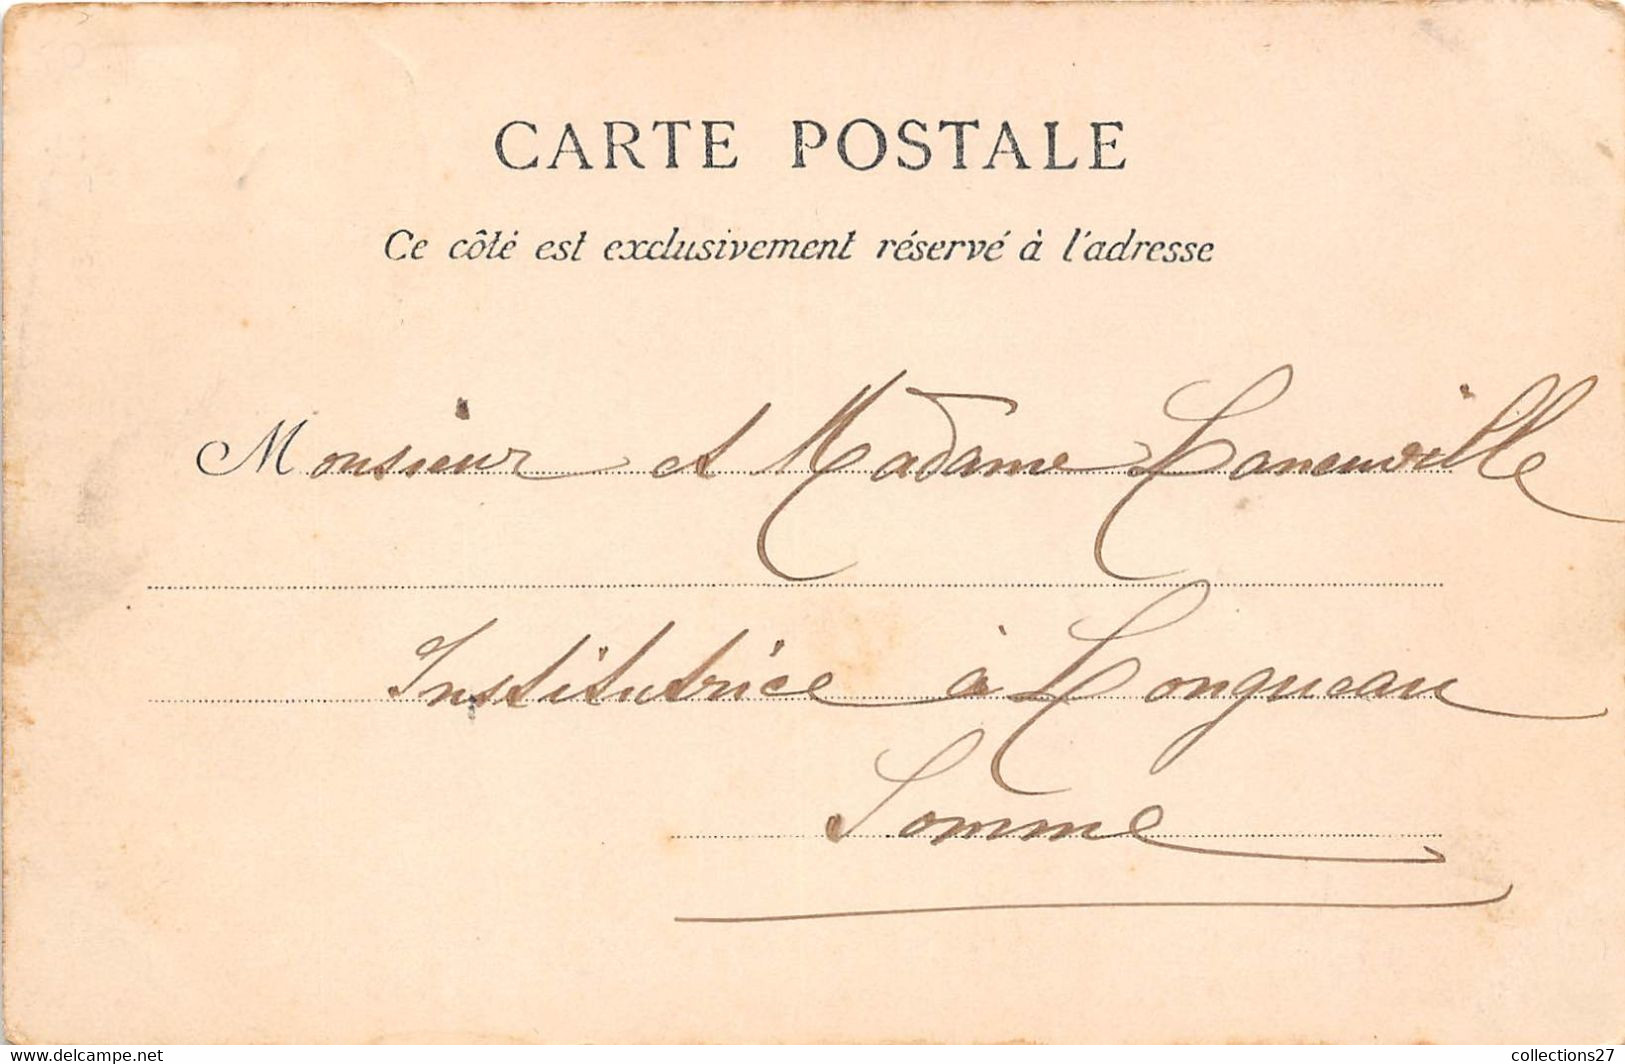 CARTE POSTALE
Ce côté est exclusivement réservé à l'adresse
Monsieur et Madame Laneuville
Institutrice à Longueau
Somme
www.delcampe.net
collections27